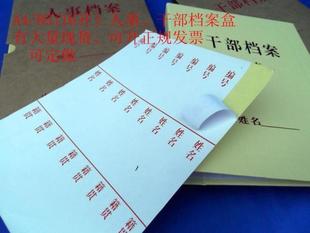 人事、干部档案盒
有大量现货，可开正规发票
可定做
人事档案
干部档案
姓名
编号 编号 编号 编号 编号 编号 编号
姓名 姓名 姓名 姓名 姓名 姓名 姓名
籍贯 籍贯 籍贯 籍贯 籍贯 籍贯 籍贯